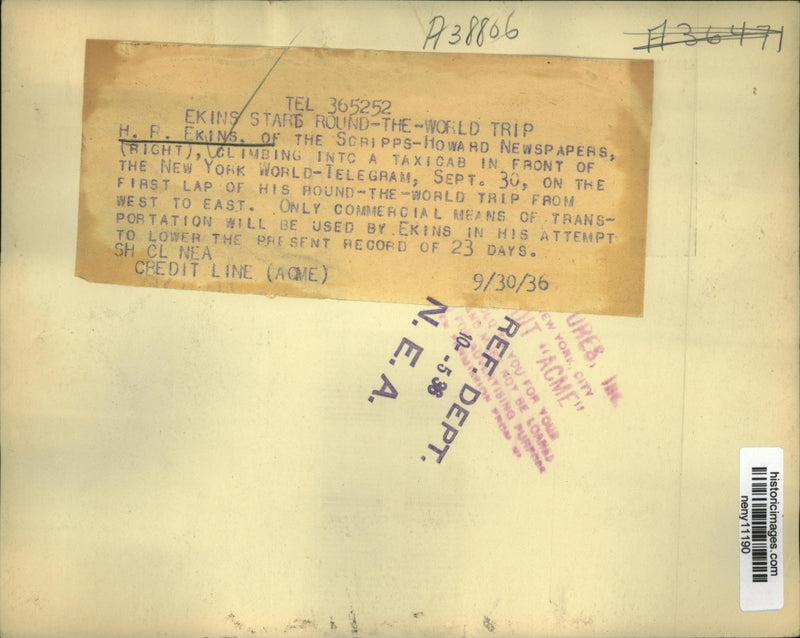 A38806
A36471
TEL 365252
EKINS STARTS ROUND-THE-WORLD TRIP
H. R. EKINS, OF THE SCRIPPS-HOWARD NEWSPAPERS,
(RIGHT), CLIMBING INTO A TAXICAB IN FRONT OF
THE NEW YORK WORLD-TELEGRAM, SEPT. 30, ON THE
FIRST LAP OF HIS ROUND-THE-WORLD TRIP FROM
WEST TO EAST. ONLY COMMERCIAL MEANS OF TRANS-
PORTATION WILL BE USED BY EKINS IN HIS ATTEMPT
TO LOWER THE PRESENT RECORD OF 23 DAYS.
SH CL NEA
CREDIT LINE (ACME) 9/30/36
REF. DEPT.
10-5 36
N. E. A.
INC.
NEW YORK, CITY
"ACME"
YOU FOR YOUR
NOT BE LOANED
ADVERTISING PURPOSE
historicimages.com
neny11190